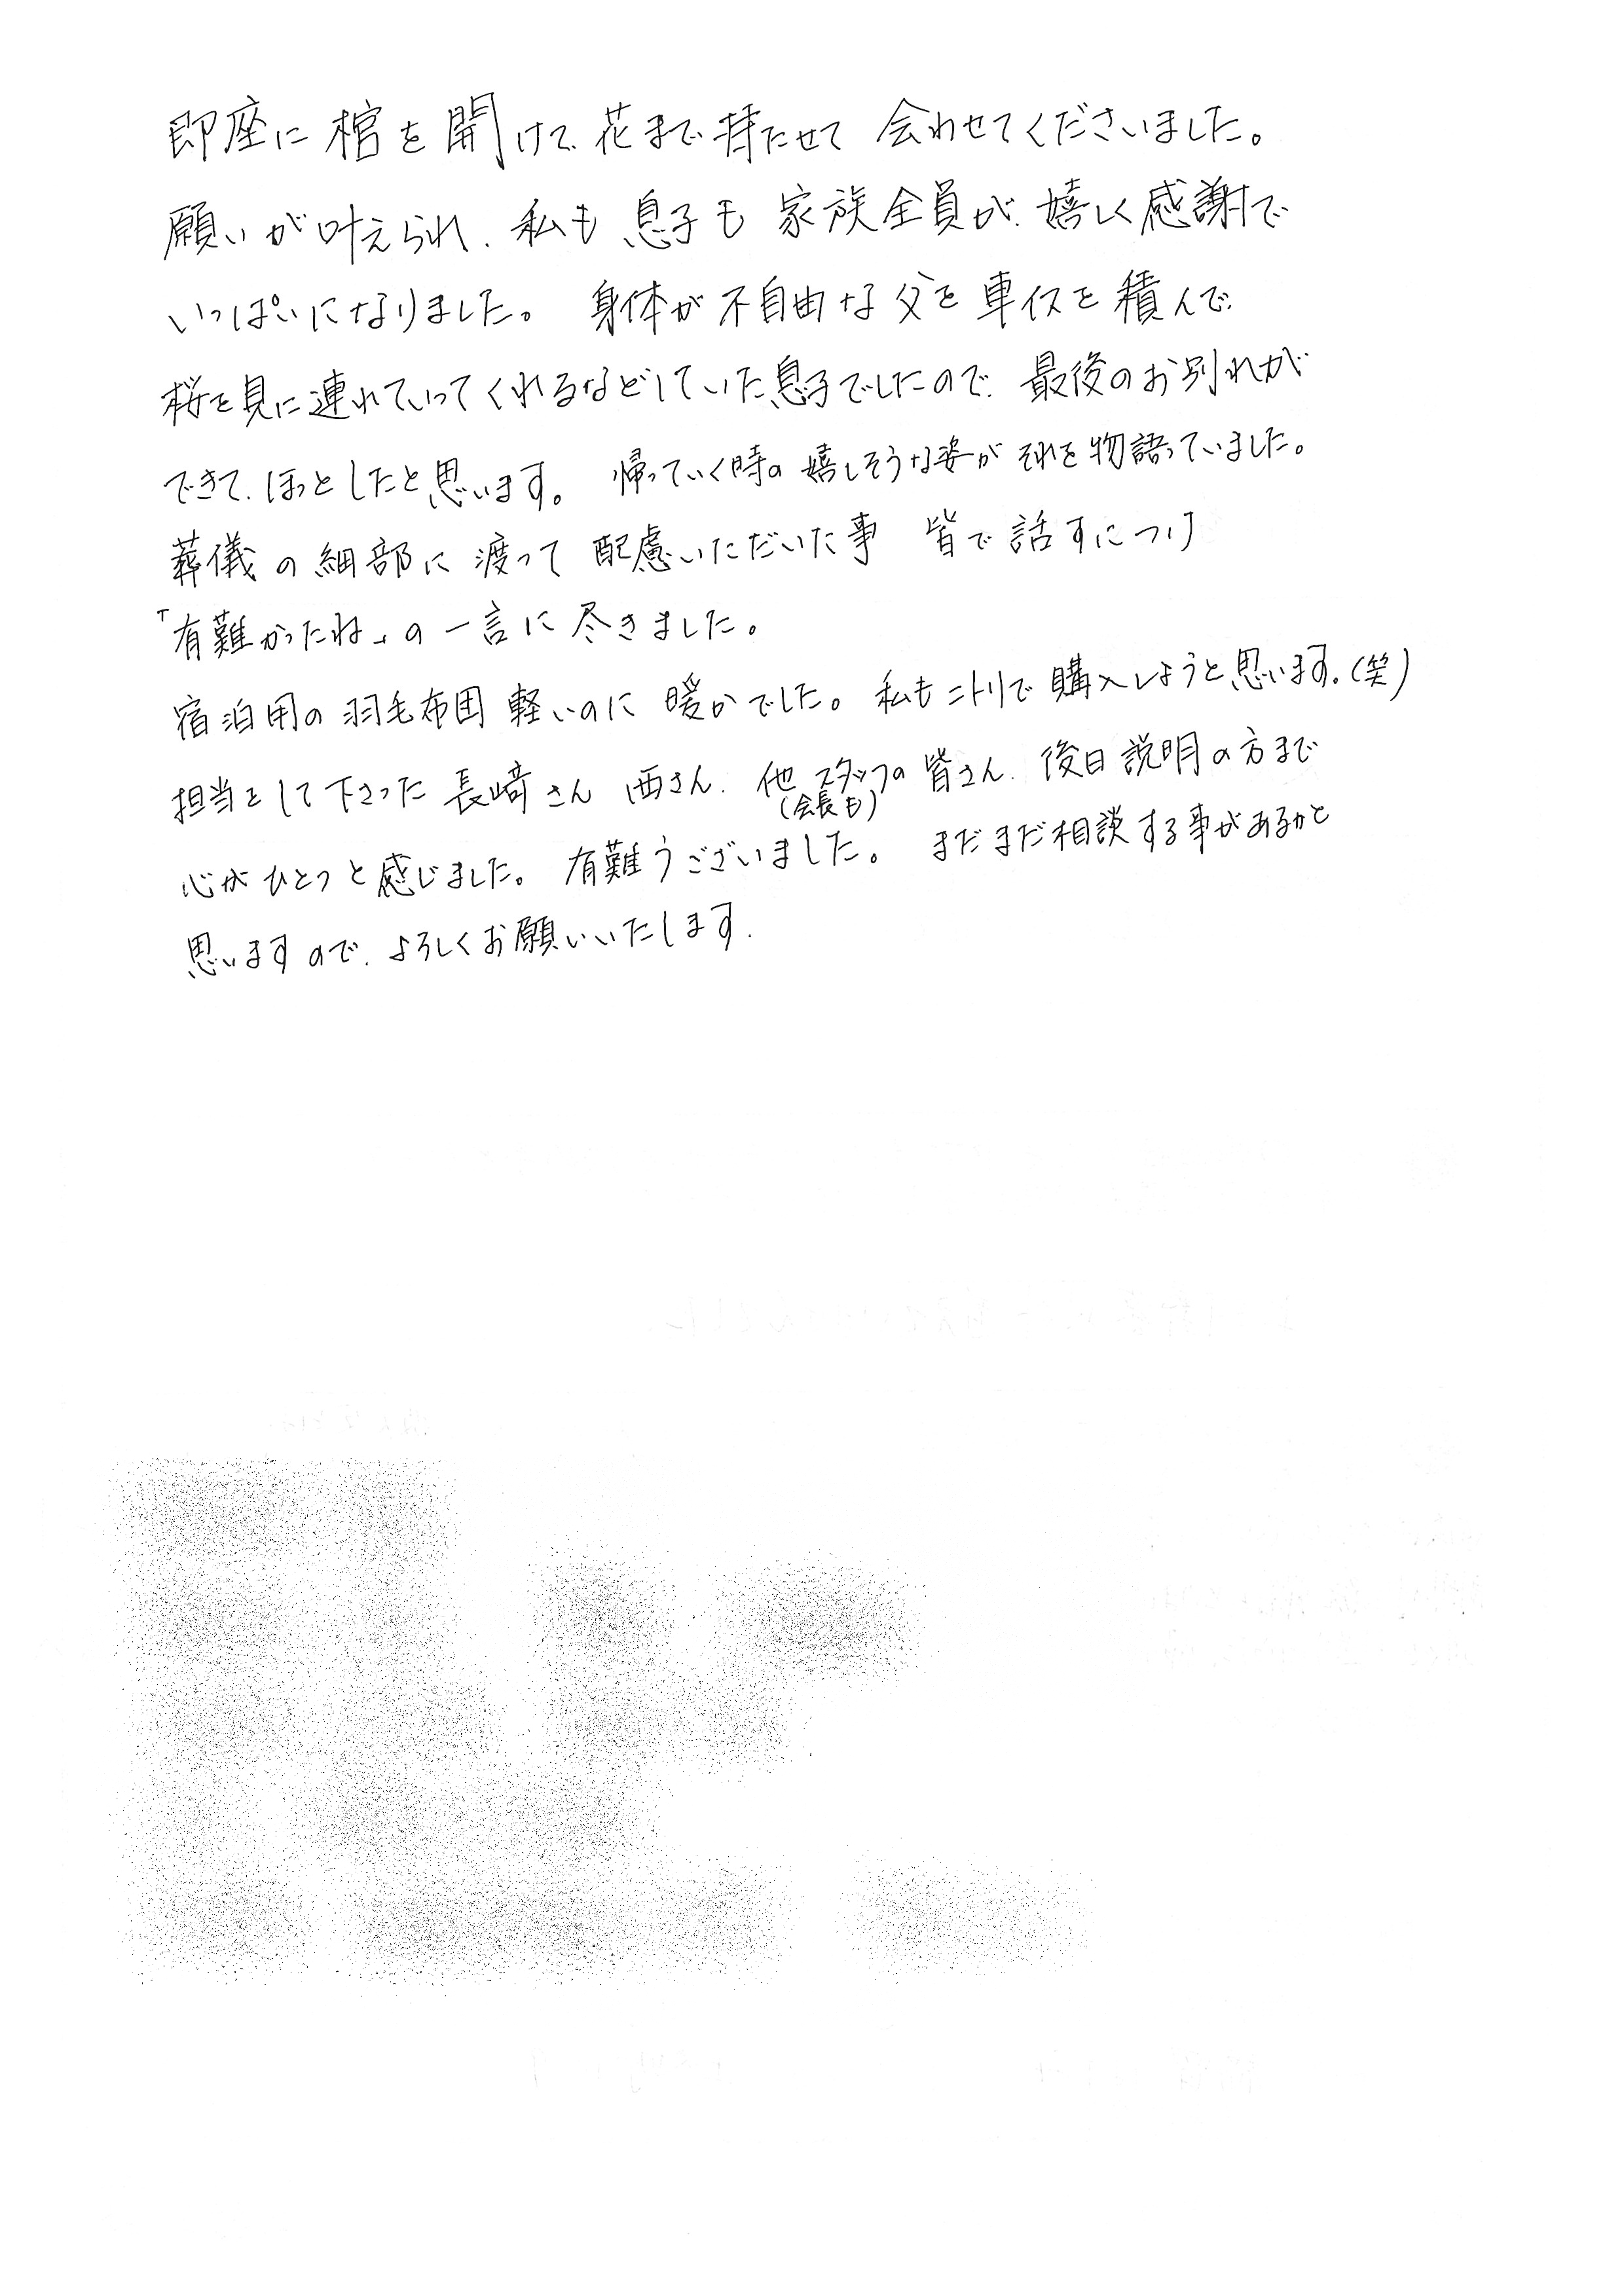 即座に棺を開けて、花まで持たせて 会わせてくださいました。
願いが叶えられ、私も 息子も 家族全員が、嬉しく感謝で
いっぱいになりました。 身体が不自由な父を車イスを積んで、
桜を見に連れていってくれるなどしていた息子でしたので、最後のお別れが
できて、ほっとしたと思います。 帰っていく時の嬉しそうな姿がそれを物語っていました。
葬儀の細部に渡って配慮いただいた事 皆で話すにつけ
「有難かったね」の一言に尽きました。
宿泊用の羽毛布団 軽いのに 暖かでした。私もニトリで購入しようと思います。(笑)
担当をして下さった 長﨑さん 西さん、他 スタッフの皆さん、後日説明の方まで
(会長も)
心がひとつと感じました。有難うございました。 まだまだ相談する事があるかと
思いますので、よろしくお願いいたします。